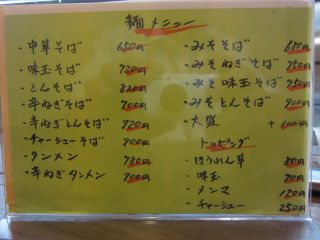 麺メニュー
・中華そば 650円
・味玉そば 720円
・とんそば 820円
・辛ねぎそば 700円
・辛ねぎとんそば 920円
・チャーシューそば 900円
・タンメン 780円
・辛ねぎタンメン 900円
・みそそば 650円
・みそねぎそば 750円
・みそ味玉そば 750円
・みそとんそば 900円
・大盛
トッピング
・ほうれん草 80円
・味玉 70円
・メンマ 120円
・チャーシュー 250円